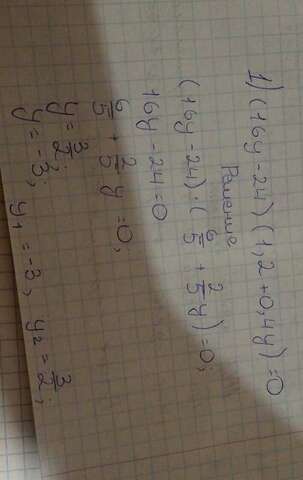 1) (16y-24)(1,2+0,4y)=0
Решение
(16y-24)·(6/5 + 2/5 y)=0;
16y-24=0
6/5 + 2/5 y =0;
y=3/2;
y=-3; y1=-3, y2=3/2;